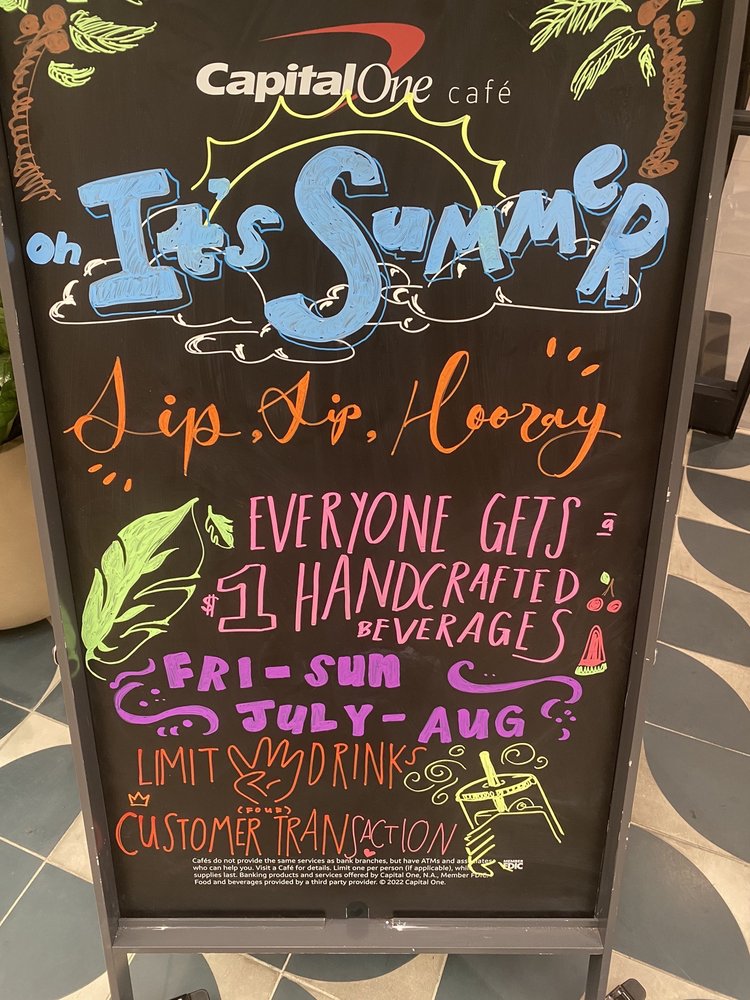 CapitalOne café
oh It's Summer
Sip, Sip, Hooray
EVERYONE GETS a
$1 HANDCRAFTED
BEVERAGES
FRI-SUN
JULY-AUG
LIMIT DRINKS
(FOUR)
CUSTOMER TRANSACTION
Cafés do not provide the same services as bank branches, but have ATMs and
who can help you. Visit a Café for details. Limit one per person (if applicable),
supplies last. Banking products and services offered by Capital One, N.A., Member FDIC.
Food and beverages provided by a third party provider. © 2022 Capital One.
MEMBER
FDIC